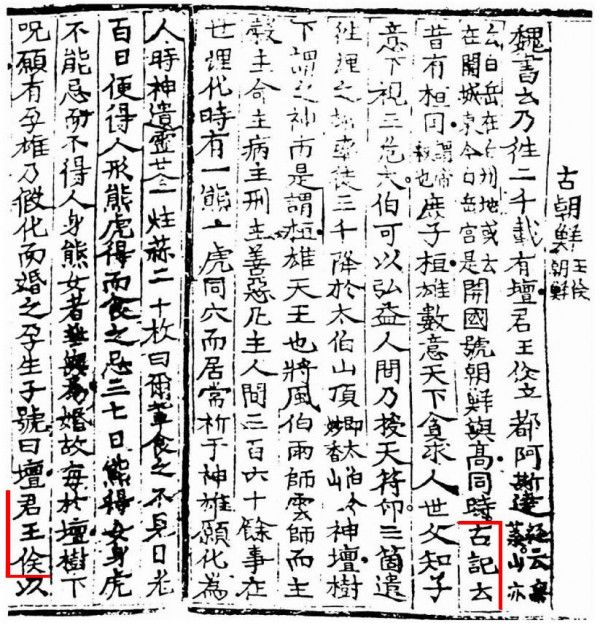 古朝鮮 王儉朝鮮
魏書云乃徃二千載有壇君王儉立都阿斯達 經云無葉山亦
云白岳在白州地或云在開城東今白岳宮是 開國號朝鮮與高同時古記云
昔有桓囯 謂帝釋也 庶子桓雄數意天下貪求人世父知子
意下視三危太伯可以弘益人間乃授天符印三箇遣
徃理之雄率徒三千降於太伯山頂 即太伯今妙香山 神壇樹
下謂之神市是謂桓雄天王也將風伯雨師雲師而主
穀主命主病主刑主善惡凡主人間三百六十餘事在
世理化時有一熊一虎同穴而居常祈于神雄願化為
人時神遺靈艾一炷蒜二十枚曰爾輩食之不見日光
百日便得人形熊虎得而食之忌三七日熊得女身虎
不能忌而不得人身熊女者無與為婚故每於壇樹下
呪願有孕雄乃假化而婚之孕生子號曰壇君王儉以